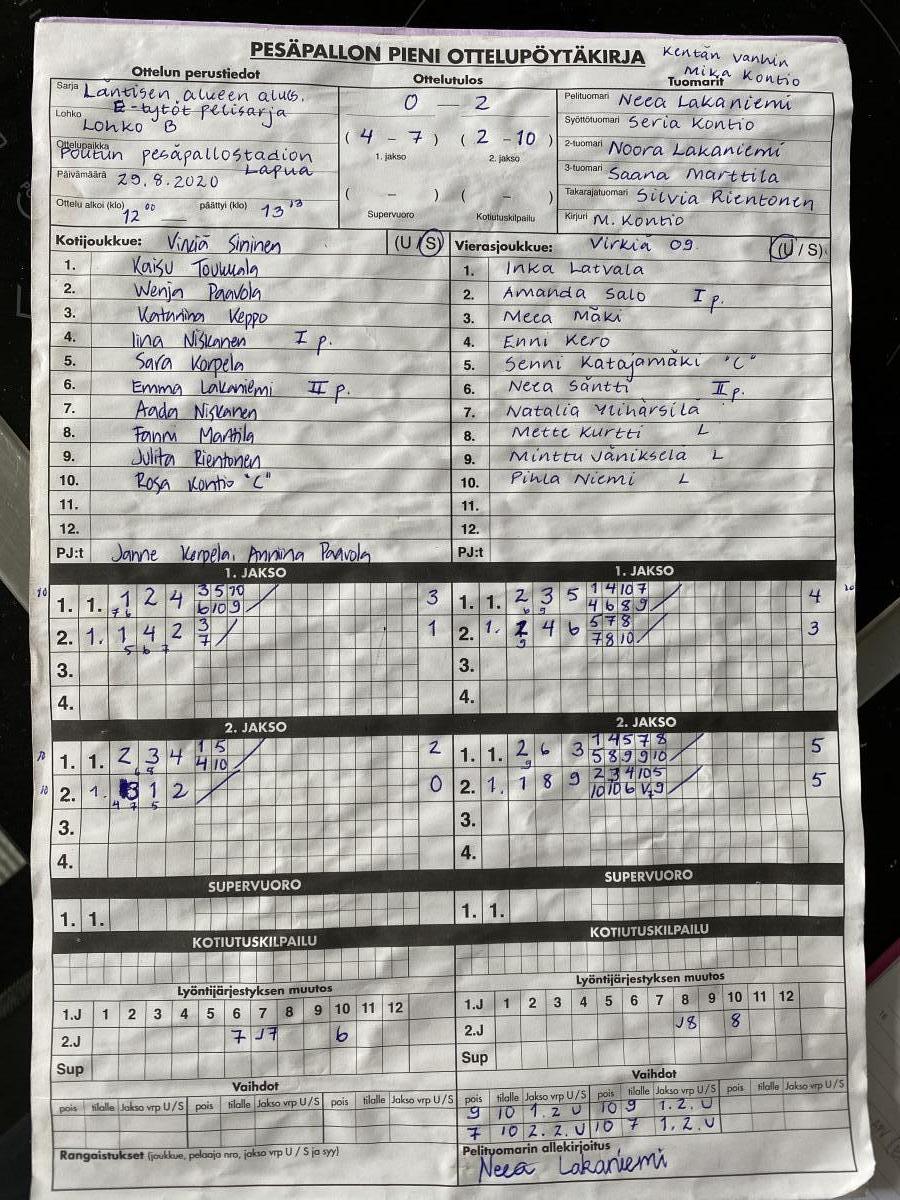 PESÄPALLON PIENI OTTELUPÖYTÄKIRJA
Kentän vanhin
Mika Kontio
Ottelun perustiedot
Sarja Läntisen alueen alues.
E-tytöt pelisarja
Lohko Lohko B
Ottelupaikka Poutun pesäpallostadion
Lapua
Päivämäärä 29.8.2020
Ottelu alkoi (klo) 12 00 päättyi (klo) 13 13
Ottelutulos
0 — 2
( 4 - 7 ) ( 2 - 10 )
1. jakso 2. jakso
( - ) ( - )
Supervuoro Kotiutuskilpailu
Tuomarit
Pelituomari Neea Lakaniemi
Syöttötuomari Seria Kontio
2-tuomari Noora Lakaniemi
3-tuomari Saana Marttila
Takarajatuomari Silvia Rientonen
Kirjuri M. Kontio
Kotijoukkue: Virkiä Sininen (U / S)
1. Kaisu Toukkala
2. Wenja Paavola
3. Katariina Keppo
4. Iina Niskanen I p.
5. Sara Korpela
6. Emma Lakaniemi II p.
7. Aada Niskanen
8. Fanni Marttila
9. Julita Rientonen
10. Rosa Kontio "C"
11.
12.
PJ:t Janne Korpela, Annina Paavola
Vierasjoukkue: Virkiä 09. (U / S)
1. Inka Latvala
2. Amanda Salo I p.
3. Meea Mäki
4. Enni Kero
5. Senni Katajamäki "C"
6. Neea Säntti II p.
7. Natalia Ylihärsilä
8. Mette Kurtti L
9. Minttu Jäniksela L
10. Pihla Niemi L
11.
12.
PJ:t
1. JAKSO
1. 1. 1 2 4 3 5 10 3
7 6 6 10 9
2. 1. 1 4 2 3 1
5 6 7 7
3.
4.
1. JAKSO
1. 1. 2 3 5 1 4 10 7 4
6 9 4 6 8 9
2. 1. 2 4 6 5 7 8 3
9 7 8 10
3.
4.
2. JAKSO
1. 1. 2 3 4 1 5 2
6 5 4 10
2. 1. 3 1 2 0
4 7 5
3.
4.
2. JAKSO
1. 1. 2 6 3 1 4 5 7 8 5
9 5 8 9 9 10
2. 1. 1 8 9 2 3 4 10 5 5
10 10 6 V7 9
3.
4.
SUPERVUORO
1. 1.
SUPERVUORO
1. 1.
KOTIUTUSKILPAILU
KOTIUTUSKILPAILU
Lyöntijärjestyksen muutos
1.J 1 2 3 4 5 6 7 8 9 10 11 12
2.J 7 J7 6
Sup
Lyöntijärjestyksen muutos
1.J 1 2 3 4 5 6 7 8 9 10 11 12
2.J J8 8
Sup
Vaihdot
pois tilalle Jakso vrp U / S pois tilalle Jakso vrp U / S pois tilalle Jakso vrp U / S
Vaihdot
pois tilalle Jakso vrp U / S pois tilalle Jakso vrp U / S pois tilalle Jakso vrp U / S
9 10 1. 2. U 10 9 1. 2. U
7 10 2. 2. U 10 7 1. 2. U
Rangaistukset (joukkue, pelaaja nro, jakso vrp U / S ja syy)
Pelituomarin allekirjoitus
Neea Lakaniemi